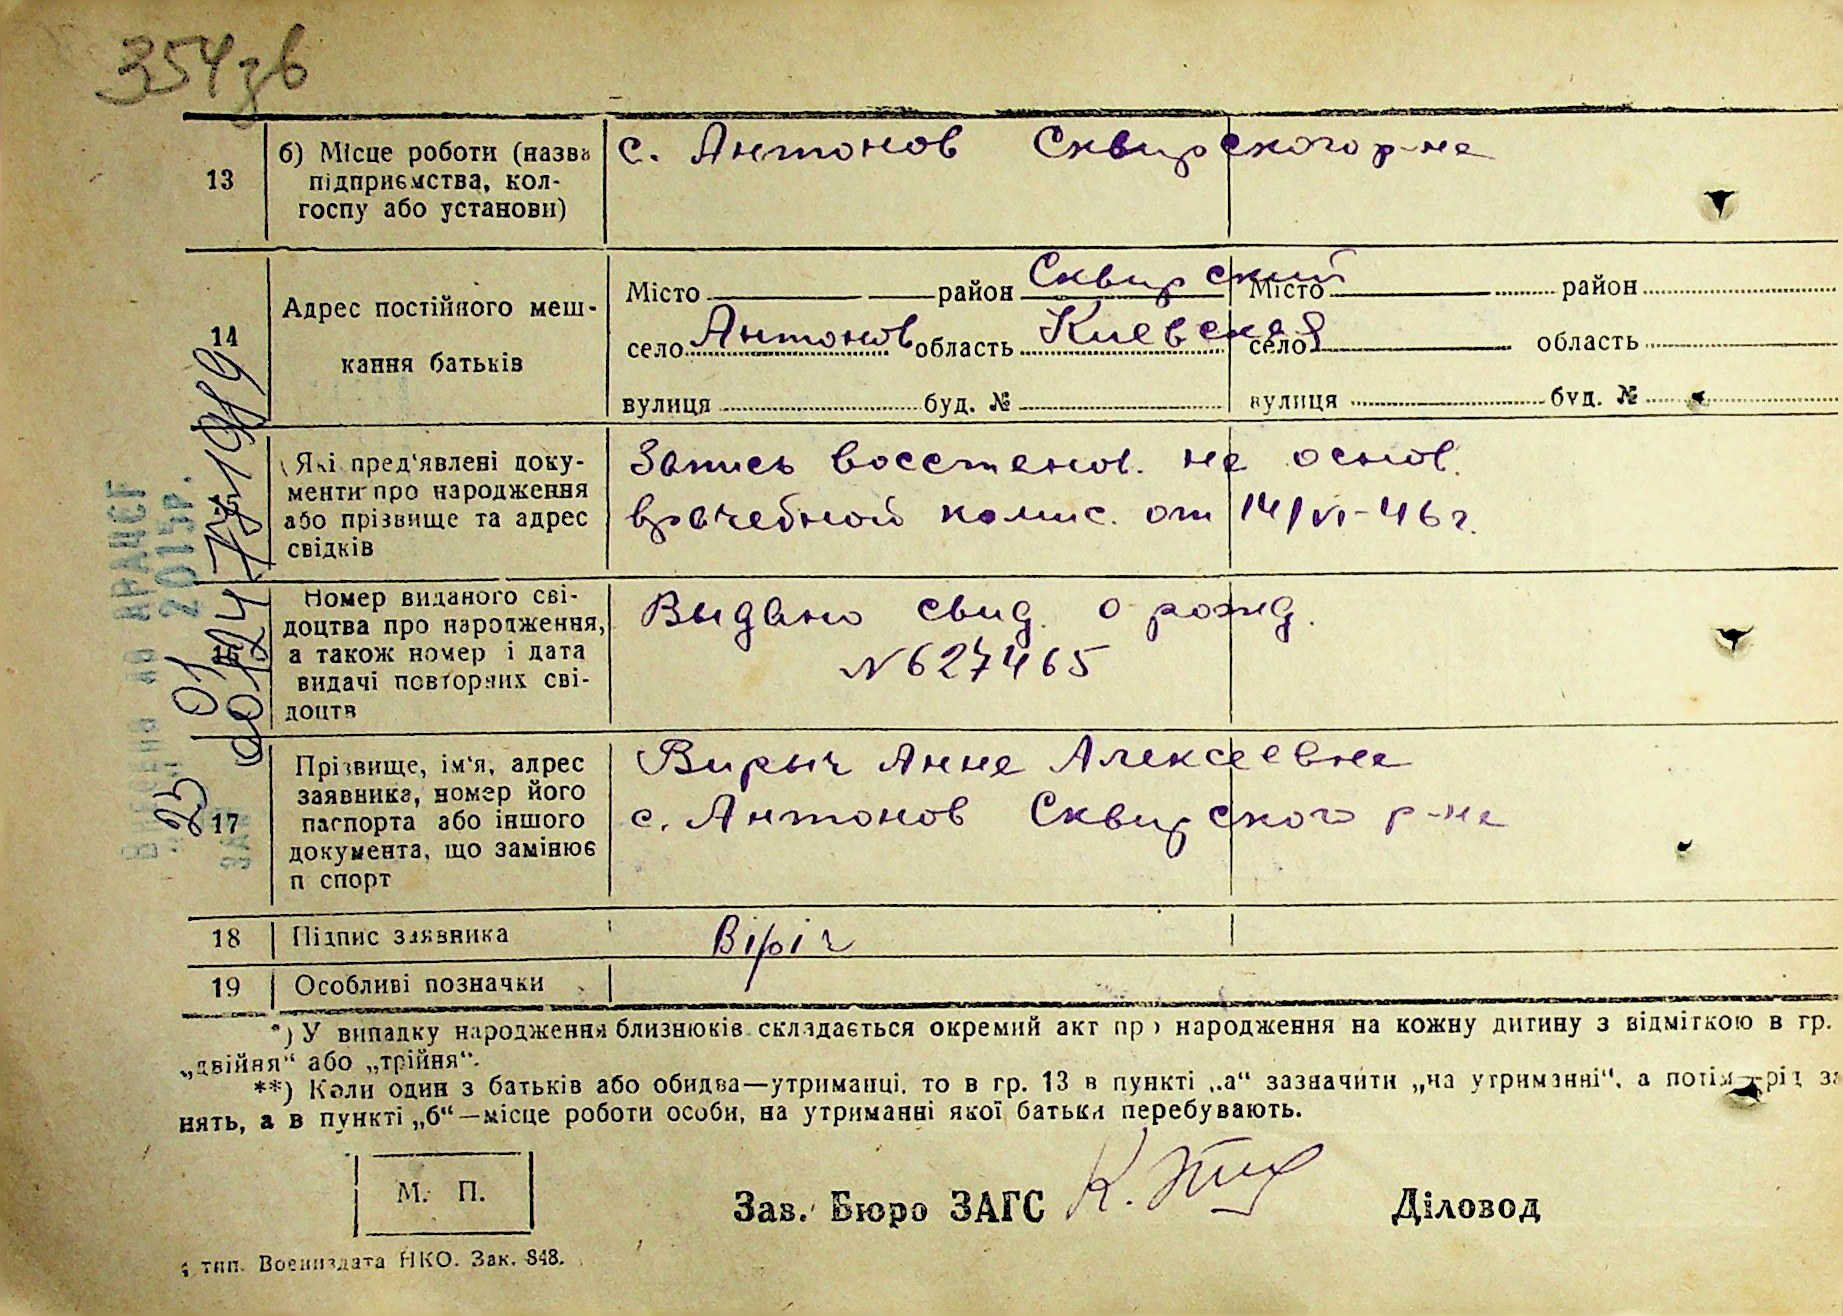 354зв
13
б) Місце роботи (назва
підприємства, кол-
госпу або установи)
с. Антонов Сквирского р-на
14
Адрес постійного меш-
кання батьків
Місто район Сквирский Місто район
село Антонов область Киевская село область
вулиця буд. № вулиця буд. №
Які пред'явлені доку-
менти про народження
або прізвище та адрес
свідків
Запись восстанов. на основ.
врачебной комис. от 14/VI-46 г.
16
Номер виданого сві-
доцтва про народження,
а також номер і дата
видачі повторних сві-
доцтв
Выдано свид. о рожд.
N 627465
17
Прізвище, ім'я, адрес
заявника, номер його
паспорта або іншого
документа, що замінює
п спорт
Вирыч Анна Алексеевна
с. Антонов Сквирского р-на
18
Підпис заявника
Віріч
19
Особливі позначки
*) У випадку народження близнюків складається окремий акт про народження на кожну дитину з відміткою в гр.
„двійня“ або „трійня“.
**) Коли один з батьків або обидва—утриманці, то в гр. 13 в пункті „а“ зазначити „на утриманні“, а потім рід за
нять, а в пункті „б“—місце роботи особи, на утриманні якої батьки перебувають.
М. П.
Зав. Бюро ЗАГС
Діловод
тип. Воениздата НКО. Зак. 848.
2015р.